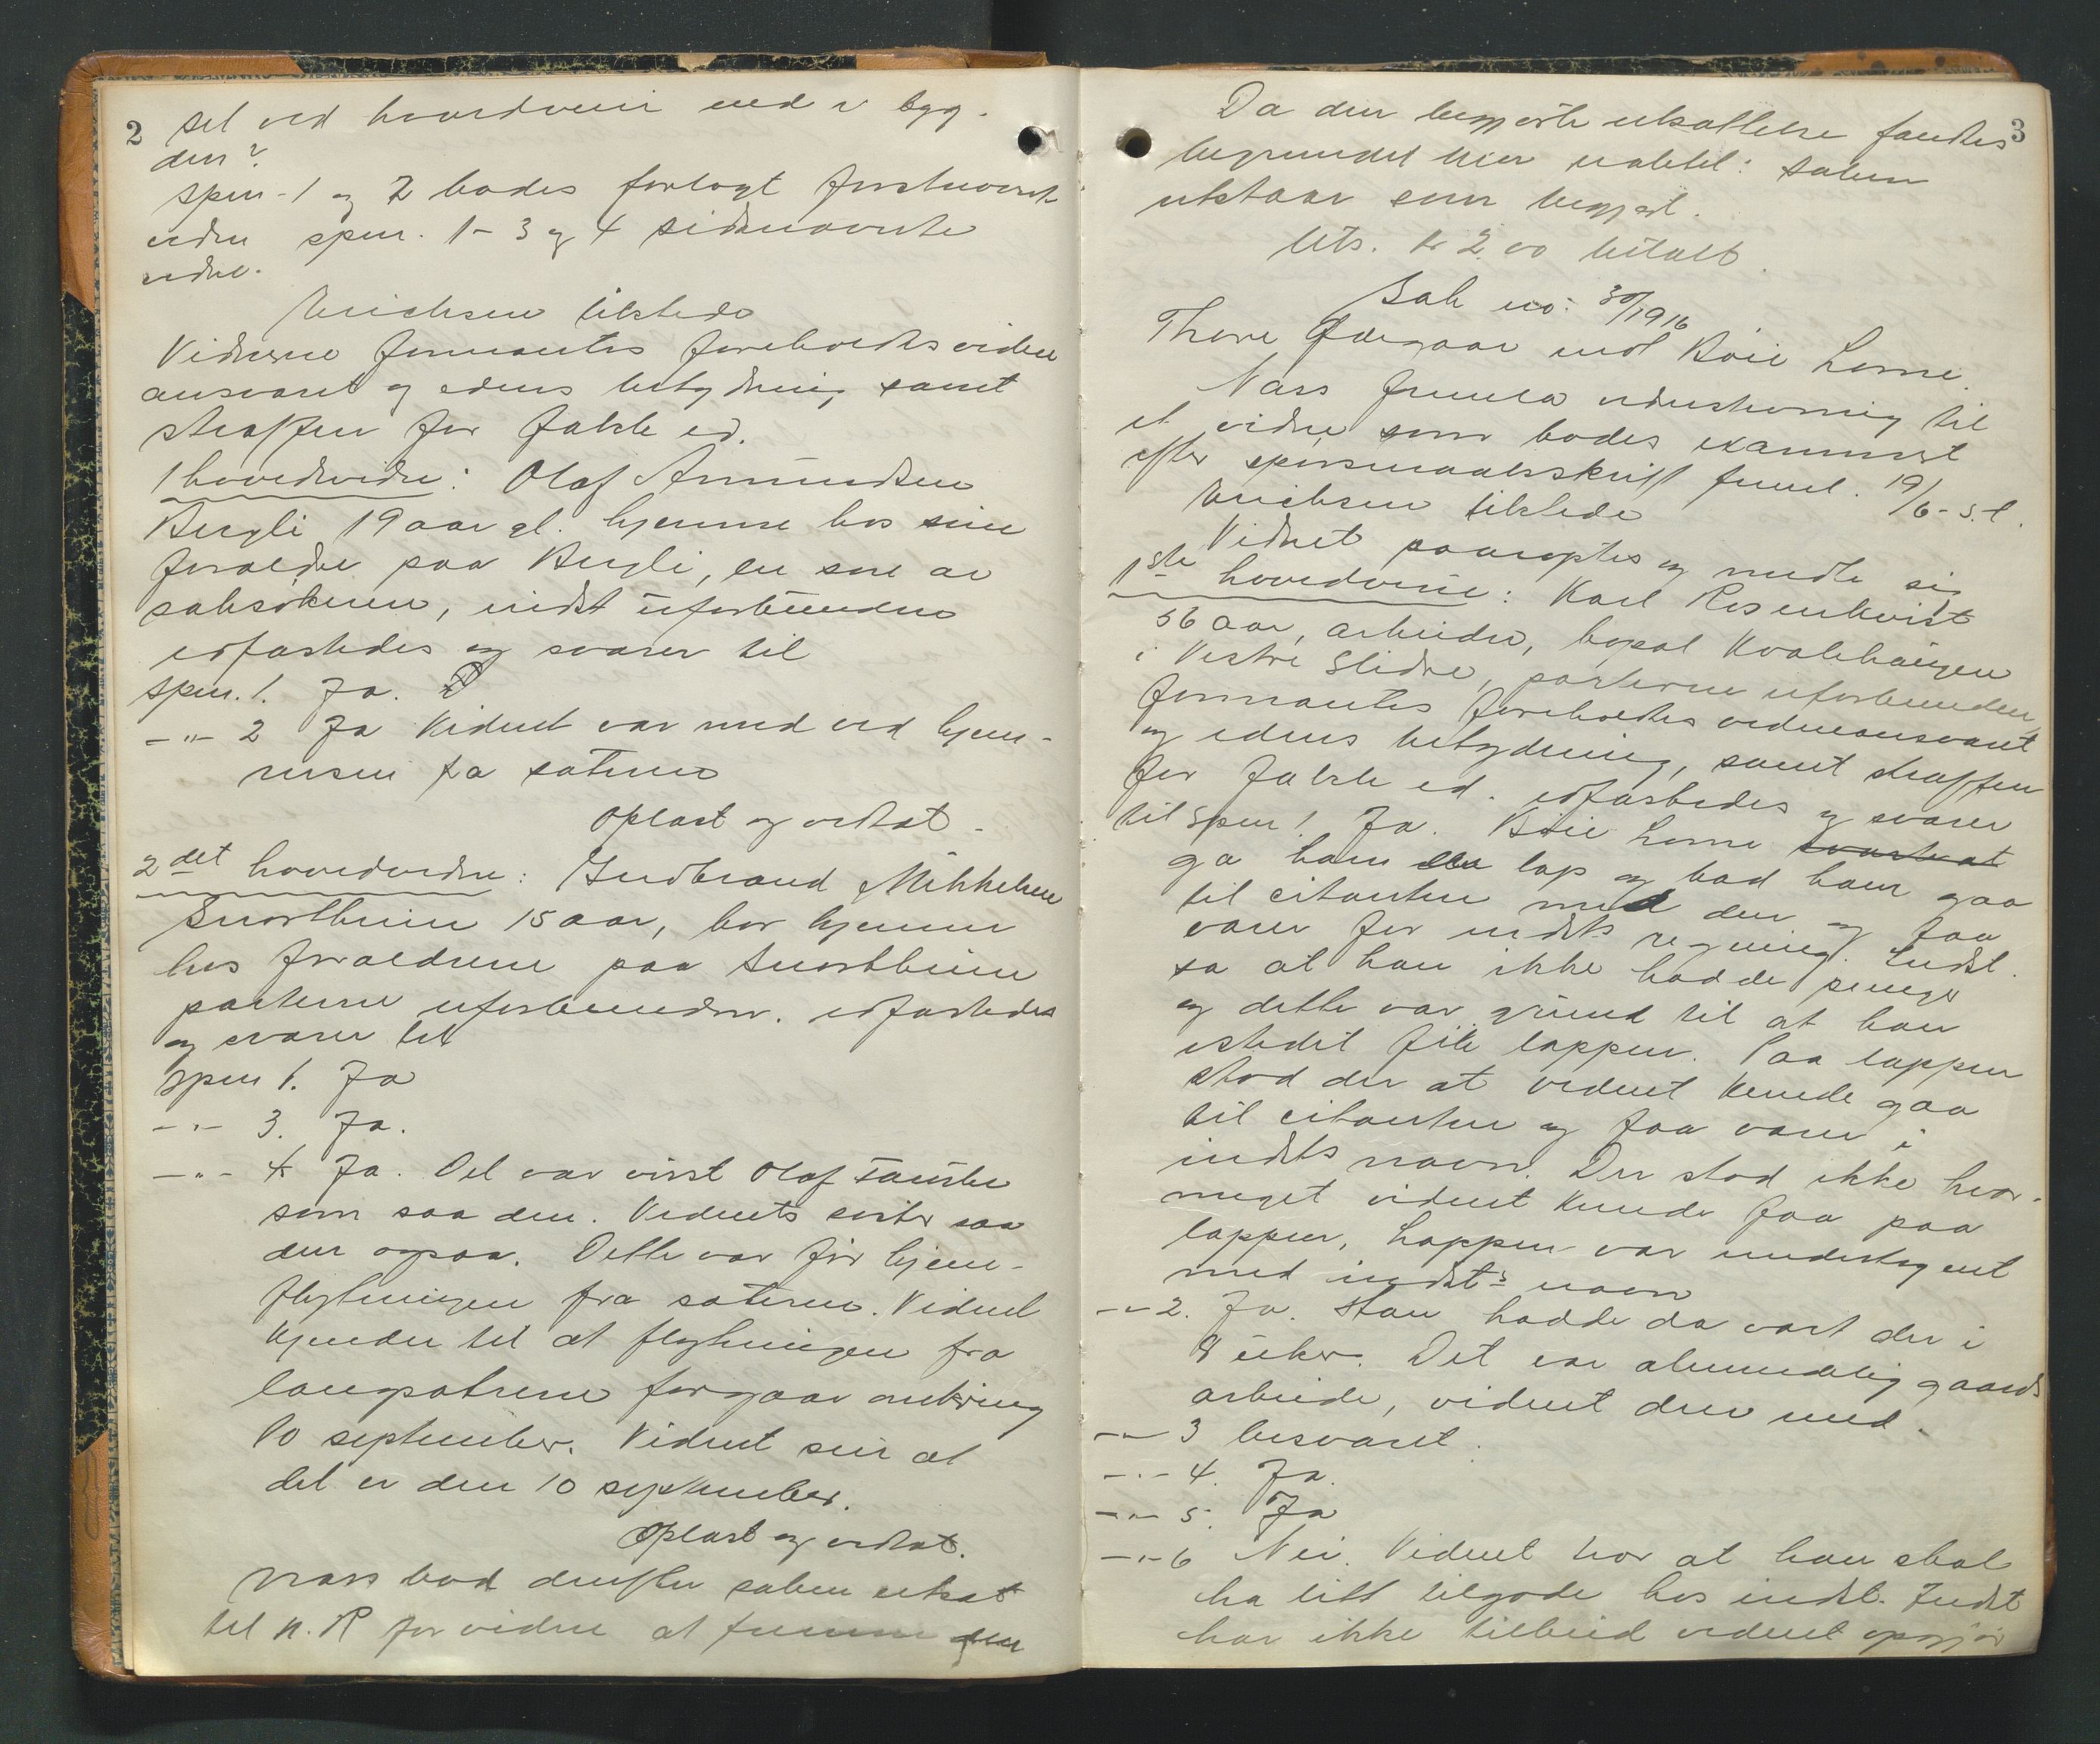 2
sel ved hovedveien ned i byg-
den?
Spm. 1 og 2 bades forlagt førstnævnte
vidne spm. 1 - 3 og 4 sidstnævnte
vidne.
Erichsen tilstede
Vidnerne formantes foreholdtes vidne
ansvaret og edens betydning samt
straffen for falsk ed.
1 hovedvidne: Olaf Amundsen
Bergli 19 aar gl. hjemme hos sine
forældre paa Bergli, en søn av
saksøkeren, indst uforbunden
edfæstedes og svarer til
spm. 1. Ja.
-"- 2 Ja Vidnet var med ved hjem-
reisen fra sæteren
Oplæst og vedtat.
2det hovedvidne: Gudbrand Mikkelsen
Snortheim 15 aar, bor hjemme
hos forældrene paa Snortheim
parterne uforbunden. edfæstedes
og svarer til
Spm 1. Ja
-"- 3. Ja.
-"- 4 Ja. Det var visst Olaf
som saa den. Vidnets søster saa
den ogsaa. Dette var før hjem-
flytningen fra sæteren. Vidnet
kjender til at flytningen fra
langsætrene foregaar omkring
10 september. Vidnet sier at
det er den 10 september.
Oplæst og vedtat.
Næss bad derefter saken utsat
til n. R for videre at fremme den
3
Da den begjærte utsættelse fandtes
begrundet blev avsagt: Saken
utstaar som begjært.
Uts. kr 2.00 betalt.
Sak no: 30/1916
Thore Ødegaar mot Boie Lome.
Næss fremla vidnestevning til
et vidne som bades examinert
efter spørsmaalsskrift freml. 19/6 - s.l.
Erichsen tilstede
Vidnet paaroptes og meldte sig
1ste hovedvidne: Karl Rosenkvist
56 aar, arbeider, bopæl Kvalehaugen
i Vestre Slidre, parterne uforbunden,
formantes foreholdtes vidneansvaret
og edens betydning, samt straffen
for falsk ed. edfæstedes og svarer
til Spm 1. Ja. Boie Lome svarte at
ga ham en lap og bad ham gaa
til citanten med den og faa
varer for indsts regning. Indst.
sa at han ikke hadde penger
og dette var grund til at han
istedet fik lappen. Paa lappen
stod der at vidnet kunde gaa
til citanten og faa varer i
indsts navn. Der stod ikke hvor-
meget vidnet kunde faa paa
lappen, Lappen var undertegnet
med indsts navn
-"- 2. Ja. Han hadde da vært der i
8 uker. Det var almindelig gaards
arbeide, vidnet drev med.
-"- 3 besvaret.
-"- 4. Ja.
-"- 5. Ja
-"- 6 Nei. Vidnet tror at han skal
ha litt tilgode hos indst. Indst
har ikke tilbud vidnet opgjør